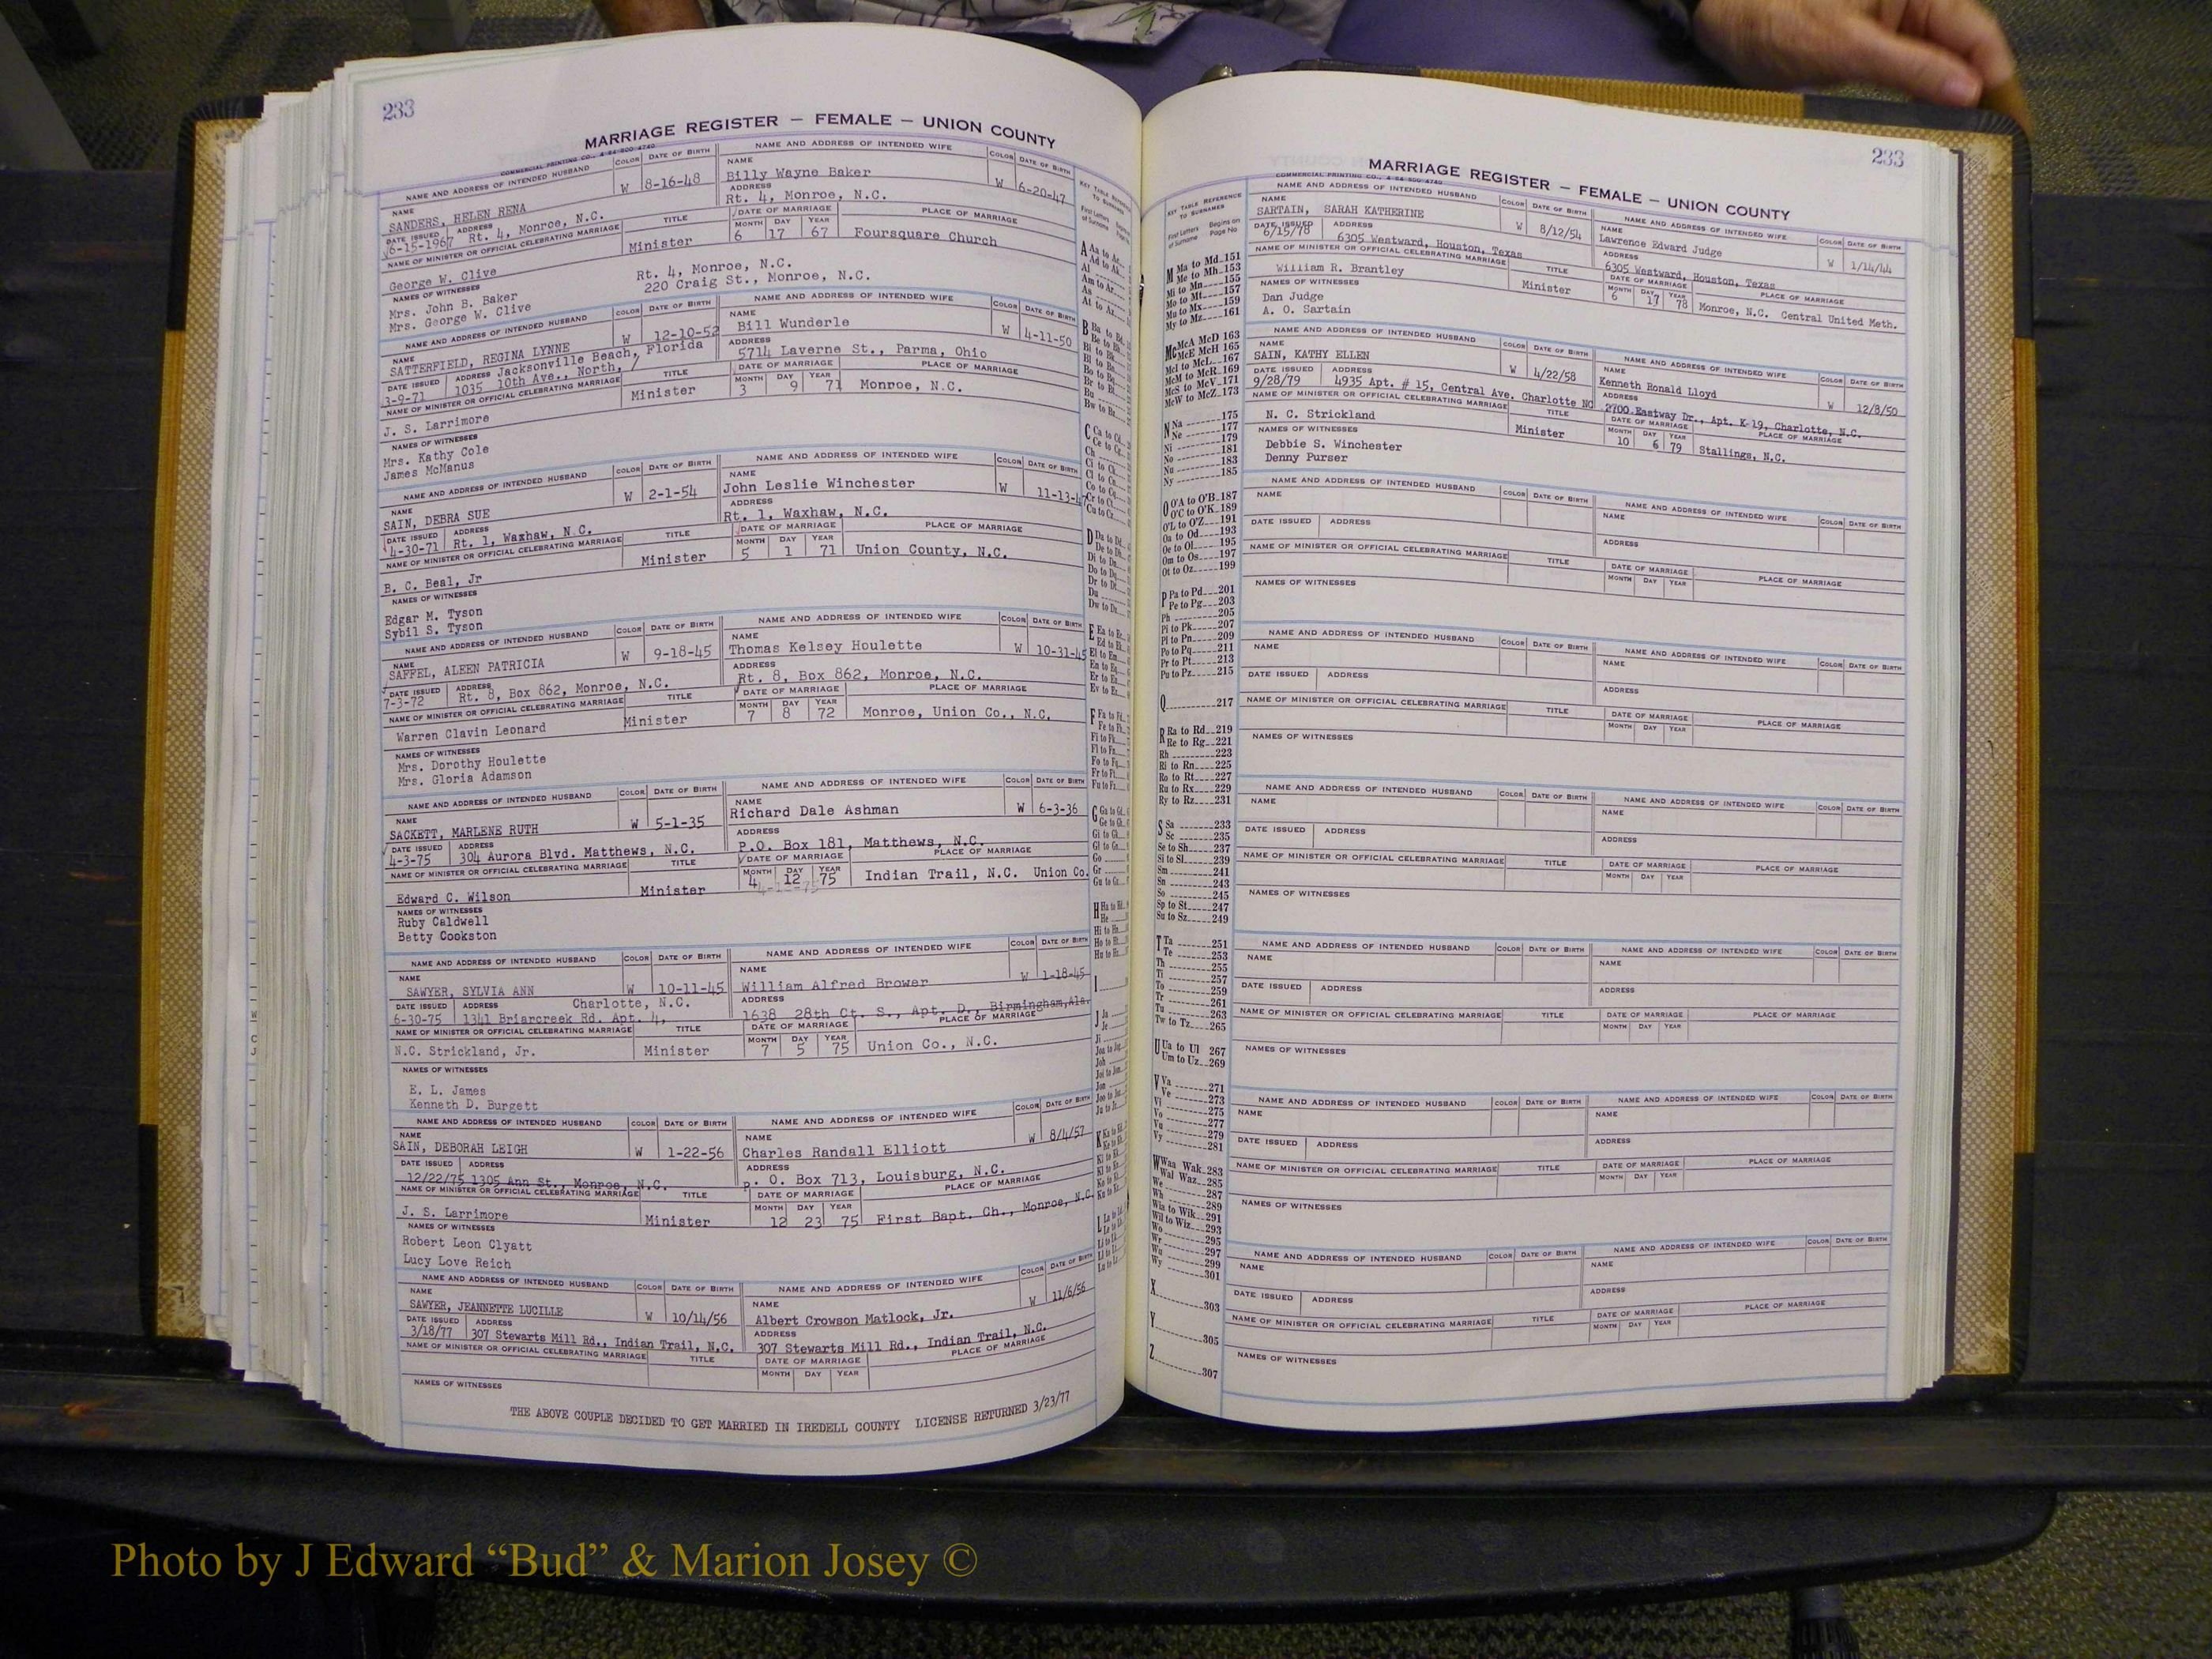 233
MARRIAGE REGISTER — FEMALE — UNION COUNTY
COMMERCIAL PRINTING CO.,
NAME AND ADDRESS OF INTENDED HUSBAND COLOR DATE OF BIRTH NAME AND ADDRESS OF INTENDED WIFE COLOR DATE OF BIRTH
NAME SANDERS, HELEN RENA W 8-16-48 NAME Billy Wayne Baker W 6-20-47
DATE ISSUED 6-15-1967 ADDRESS Rt. 4, Monroe, N.C. ADDRESS Rt. 4, Monroe, N.C.
NAME OF MINISTER OR OFFICIAL CELEBRATING MARRIAGE TITLE DATE OF MARRIAGE PLACE OF MARRIAGE
George W. Clive Minister MONTH 6 DAY 17 YEAR 67 Foursquare Church
NAMES OF WITNESSES
Mrs. John B. Baker Rt. 4, Monroe, N.C.
Mrs. George W. Clive 220 Craig St., Monroe, N.C.
NAME AND ADDRESS OF INTENDED HUSBAND COLOR DATE OF BIRTH NAME AND ADDRESS OF INTENDED WIFE COLOR DATE OF BIRTH
NAME SATTERFIELD, REGINA LYNNE W 12-10-52 NAME Bill Wunderle W 4-11-50
DATE ISSUED 3-9-71 ADDRESS Jacksonville Beach, Florida
1035 10th Ave., North, / ADDRESS 5714 Laverne St., Parma, Ohio
NAME OF MINISTER OR OFFICIAL CELEBRATING MARRIAGE TITLE DATE OF MARRIAGE PLACE OF MARRIAGE
J. S. Larrimore Minister MONTH 3 DAY 9 YEAR 71 Monroe, N.C.
NAMES OF WITNESSES
Mrs. Kathy Cole
James McManus
NAME AND ADDRESS OF INTENDED HUSBAND COLOR DATE OF BIRTH NAME AND ADDRESS OF INTENDED WIFE COLOR DATE OF BIRTH
NAME SAIN, DEBRA SUE W 2-1-54 NAME John Leslie Winchester W 11-13-47
DATE ISSUED 4-30-71 ADDRESS Rt. 1, Waxhaw, N.C. ADDRESS Rt. 1, Waxhaw, N.C.
NAME OF MINISTER OR OFFICIAL CELEBRATING MARRIAGE TITLE DATE OF MARRIAGE PLACE OF MARRIAGE
B. C. Beal, Jr Minister MONTH 5 DAY 1 YEAR 71 Union County, N.C.
NAMES OF WITNESSES
Edgar M. Tyson
Sybil S. Tyson
NAME AND ADDRESS OF INTENDED HUSBAND COLOR DATE OF BIRTH NAME AND ADDRESS OF INTENDED WIFE COLOR DATE OF BIRTH
NAME SAFFEL, ALEEN PATRICIA W 9-18-45 NAME Thomas Kelsey Houlette W 10-31-45
DATE ISSUED 7-3-72 ADDRESS Rt. 8, Box 862, Monroe, N.C. ADDRESS Rt. 8, Box 862, Monroe, N.C.
NAME OF MINISTER OR OFFICIAL CELEBRATING MARRIAGE TITLE DATE OF MARRIAGE PLACE OF MARRIAGE
Warren Clavin Leonard Minister MONTH 7 DAY 8 YEAR 72 Monroe, Union Co., N.C.
NAMES OF WITNESSES
Mrs. Dorothy Houlette
Mrs. Gloria Adamson
NAME AND ADDRESS OF INTENDED HUSBAND COLOR DATE OF BIRTH NAME AND ADDRESS OF INTENDED WIFE COLOR DATE OF BIRTH
NAME SACKETT, MARLENE RUTH W 5-1-35 NAME Richard Dale Ashman W 6-3-36
DATE ISSUED 4-3-75 ADDRESS 304 Aurora Blvd. Matthews, N.C. ADDRESS P.O. Box 181, Matthews, N.C.
NAME OF MINISTER OR OFFICIAL CELEBRATING MARRIAGE TITLE DATE OF MARRIAGE PLACE OF MARRIAGE
Edward C. Wilson Minister MONTH 4 DAY 12 YEAR 75 Indian Trail, N.C. Union Co.
NAMES OF WITNESSES
Ruby Caldwell
Betty Cookston
NAME AND ADDRESS OF INTENDED HUSBAND COLOR DATE OF BIRTH NAME AND ADDRESS OF INTENDED WIFE COLOR DATE OF BIRTH
NAME SAWYER, SYLVIA ANN W 10-11-45 NAME William Alfred Brower W 1-18-45
DATE ISSUED 6-30-75 ADDRESS Charlotte, N.C.
1341 Briarcreek Rd. Apt. 4, ADDRESS 1638 28th Ct. S., Apt. D., Birmingham, Ala.
NAME OF MINISTER OR OFFICIAL CELEBRATING MARRIAGE TITLE DATE OF MARRIAGE PLACE OF MARRIAGE
N.C. Strickland, Jr. Minister MONTH 7 DAY 5 YEAR 75 Union Co., N.C.
NAMES OF WITNESSES
E. L. James
Kenneth D. Burgett
NAME AND ADDRESS OF INTENDED HUSBAND COLOR DATE OF BIRTH NAME AND ADDRESS OF INTENDED WIFE COLOR DATE OF BIRTH
NAME SAIN, DEBORAH LEIGH W 1-22-56 NAME Charles Randall Elliott W 8/4/57
DATE ISSUED 12/22/75 ADDRESS 1305 Ann St., Monroe, N.C. ADDRESS P. O. Box 713, Louisburg, N.C.
NAME OF MINISTER OR OFFICIAL CELEBRATING MARRIAGE TITLE DATE OF MARRIAGE PLACE OF MARRIAGE
J. S. Larrimore Minister MONTH 12 DAY 23 YEAR 75 First Bapt. Ch., Monroe, N.C.
NAMES OF WITNESSES
Robert Leon Clyatt
Lucy Love Reich
NAME AND ADDRESS OF INTENDED HUSBAND COLOR DATE OF BIRTH NAME AND ADDRESS OF INTENDED WIFE COLOR DATE OF BIRTH
NAME SAWYER, JEANNETTE LUCILLE W 10/14/56 NAME Albert Crowson Matlock, Jr. W 11/6/56
DATE ISSUED 3/18/77 ADDRESS 307 Stewarts Mill Rd., Indian Trail, N.C. ADDRESS 307 Stewarts Mill Rd., Indian Trail, N.C.
NAME OF MINISTER OR OFFICIAL CELEBRATING MARRIAGE TITLE DATE OF MARRIAGE PLACE OF MARRIAGE
MONTH DAY YEAR
NAMES OF WITNESSES
THE ABOVE COUPLE DECIDED TO GET MARRIED IN IREDELL COUNTY LICENSE RETURNED 3/23/77
233
MARRIAGE REGISTER — FEMALE — UNION COUNTY
COMMERCIAL PRINTING CO.,
KEY TABLE REFERENCE TO SURNAMES
First Letters of Surname Begins on Page No
M Ma to Md 151
Me to Mh 153
Mi to Mn 155
Mo to Mt 157
Mu to Mx 159
My to Mz 161
Mc McA McD 163
McE McH 165
McI to McL 167
McM to McR 169
McS to McV 171
McW to McZ 173
N Na 175
Ne 177
Ni 179
No 181
Nu 183
Ny 185
O O'A to O'B 187
O'C to O'K 189
O'L to O'Z 191
Oa to Od 193
Oe to Ol 195
Om to Os 197
Ot to Oz 199
P Pa to Pd 201
Pe to Pg 203
Ph 205
Pi to Pk 207
Pl to Pn 209
Po to Pq 211
Pr to Pt 213
Pu to Pz 215
Q 217
R Ra to Rd 219
Re to Rg 221
Rh 223
Ri to Rn 225
Ro to Rt 227
Ru to Rx 229
Ry to Rz 231
S Sa 233
Sc 235
Se to Sh 237
Si to Sl 239
Sm 241
Sn 243
So 245
Sp to St 247
Su to Sz 249
T Ta 251
Te 253
Th 255
Ti 257
To 259
Tr 261
Tu 263
Tw to Tz 265
U Ua to Ul 267
Um to Uz 269
V Va 271
Ve 273
Vi 275
Vo 277
Vu 279
Vy 281
W Waa Wak 283
Wal Waz 285
We 287
Wh 289
Wia to Wik 291
Wil to Wiz 293
Wo 295
Wr 297
Wu 299
Wy 301
X 303
Y 305
Z 307
NAME AND ADDRESS OF INTENDED HUSBAND COLOR DATE OF BIRTH NAME AND ADDRESS OF INTENDED WIFE COLOR DATE OF BIRTH
NAME SARTAIN, SARAH KATHERINE W 8/12/54 NAME Lawrence Edward Judge W 1/14/44
DATE ISSUED 6/15/78 ADDRESS 6305 Westward, Houston, Texas ADDRESS 6305 Westward, Houston, Texas
NAME OF MINISTER OR OFFICIAL CELEBRATING MARRIAGE TITLE DATE OF MARRIAGE PLACE OF MARRIAGE
William R. Brantley Minister MONTH 6 DAY 17 YEAR 78 Monroe, N.C. Central United Meth.
NAMES OF WITNESSES
Dan Judge
A. O. Sartain
NAME AND ADDRESS OF INTENDED HUSBAND COLOR DATE OF BIRTH NAME AND ADDRESS OF INTENDED WIFE COLOR DATE OF BIRTH
NAME SAIN, KATHY ELLEN W 4/22/58 NAME Kenneth Ronald Lloyd W 12/8/50
DATE ISSUED 9/28/79 ADDRESS 4935 Apt. # 15, Central Ave. Charlotte NC ADDRESS 2700 Eastway Dr., Apt. K-19, Charlotte, N.C.
NAME OF MINISTER OR OFFICIAL CELEBRATING MARRIAGE TITLE DATE OF MARRIAGE PLACE OF MARRIAGE
N. C. Strickland Minister MONTH 10 DAY 6 YEAR 79 Stallings, N.C.
NAMES OF WITNESSES
Debbie S. Winchester
Denny Purser
NAME AND ADDRESS OF INTENDED HUSBAND COLOR DATE OF BIRTH NAME AND ADDRESS OF INTENDED WIFE COLOR DATE OF BIRTH
NAME NAME
DATE ISSUED ADDRESS ADDRESS
NAME OF MINISTER OR OFFICIAL CELEBRATING MARRIAGE TITLE DATE OF MARRIAGE PLACE OF MARRIAGE
MONTH DAY YEAR
NAMES OF WITNESSES
NAME AND ADDRESS OF INTENDED HUSBAND COLOR DATE OF BIRTH NAME AND ADDRESS OF INTENDED WIFE COLOR DATE OF BIRTH
NAME NAME
DATE ISSUED ADDRESS ADDRESS
NAME OF MINISTER OR OFFICIAL CELEBRATING MARRIAGE TITLE DATE OF MARRIAGE PLACE OF MARRIAGE
MONTH DAY YEAR
NAMES OF WITNESSES
NAME AND ADDRESS OF INTENDED HUSBAND COLOR DATE OF BIRTH NAME AND ADDRESS OF INTENDED WIFE COLOR DATE OF BIRTH
NAME NAME
DATE ISSUED ADDRESS ADDRESS
NAME OF MINISTER OR OFFICIAL CELEBRATING MARRIAGE TITLE DATE OF MARRIAGE PLACE OF MARRIAGE
MONTH DAY YEAR
NAMES OF WITNESSES
NAME AND ADDRESS OF INTENDED HUSBAND COLOR DATE OF BIRTH NAME AND ADDRESS OF INTENDED WIFE COLOR DATE OF BIRTH
NAME NAME
DATE ISSUED ADDRESS ADDRESS
NAME OF MINISTER OR OFFICIAL CELEBRATING MARRIAGE TITLE DATE OF MARRIAGE PLACE OF MARRIAGE
MONTH DAY YEAR
NAMES OF WITNESSES
NAME AND ADDRESS OF INTENDED HUSBAND COLOR DATE OF BIRTH NAME AND ADDRESS OF INTENDED WIFE COLOR DATE OF BIRTH
NAME NAME
DATE ISSUED ADDRESS ADDRESS
NAME OF MINISTER OR OFFICIAL CELEBRATING MARRIAGE TITLE DATE OF MARRIAGE PLACE OF MARRIAGE
MONTH DAY YEAR
NAMES OF WITNESSES
NAME AND ADDRESS OF INTENDED HUSBAND COLOR DATE OF BIRTH NAME AND ADDRESS OF INTENDED WIFE COLOR DATE OF BIRTH
NAME NAME
DATE ISSUED ADDRESS ADDRESS
NAME OF MINISTER OR OFFICIAL CELEBRATING MARRIAGE TITLE DATE OF MARRIAGE PLACE OF MARRIAGE
MONTH DAY YEAR
NAMES OF WITNESSES
Photo by J Edward “Bud” & Marion Josey ©